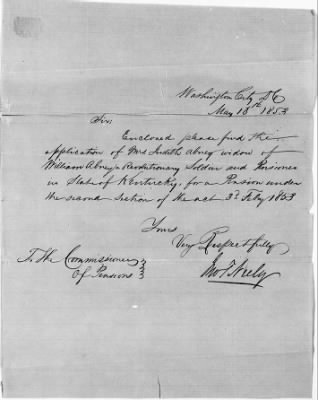 Washington City DC
May 18th 1853
Sir,
Enclosed please find the
application of Mrs Judith Abney widow of
William Abney a Revolutionary Soldier and Pensioner
in State of Kentucky, for a Pension under
the second Section of the act 3d Feby 1853
Yours
Very Respectfully
To The Commissioner
Of Pensions